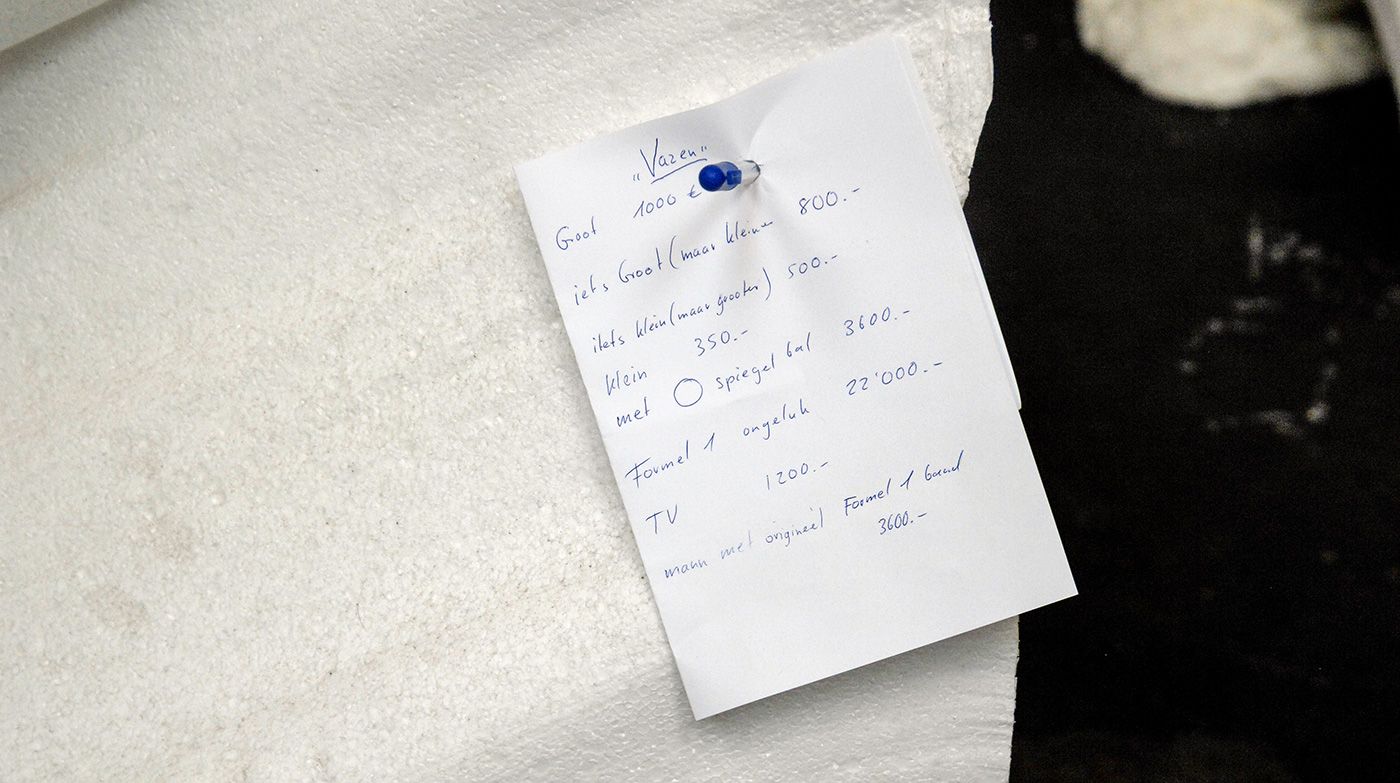 „Vazen“
Groot 1000 €
iets Groot (maar kleine 800.-
ilets klein (maar grooter) 500.-
klein 350.-
met spiegel bal 3600.-
Formel 1 ongeluk 22'000.-
TV 1200.-
mann met origineel Formel 1 band
3600.-